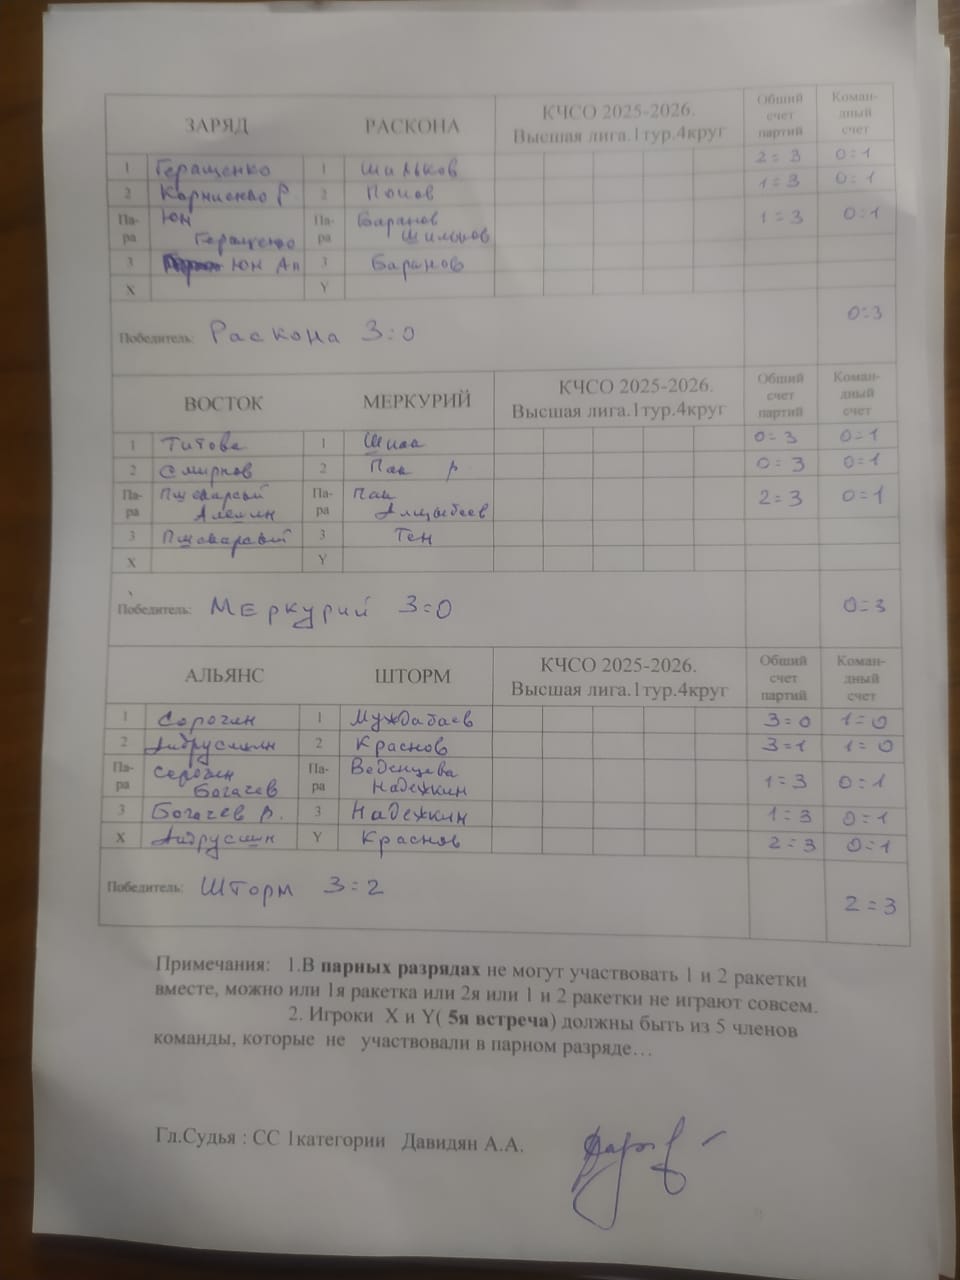 ЗАРЯД РАСКОНА КЧСО 2025-2026. Высшая лига.1тур.4круг Общий счет партий Коман-дный счет
1 Геращенко 1 Шильков 2=3 0=1
2 Корниенко Р 2 Попов 1=3 0=1
Па-ра Юн Геращенко Па-ра Баранов Шильков 1=3 0=1
3 Юн Ан 3 Баранов
X Y
Победитель: Раскона 3=0 0=3
ВОСТОК МЕРКУРИЙ КЧСО 2025-2026. Высшая лига.1тур.4круг Общий счет партий Коман-дный счет
1 Титова 1 0=3 0=1
2 Смирнов 2 Пак Р 0=3 0=1
Па-ра Алешин Па-ра Пак 2=3 0=1
3 3 Тен
X Y
Победитель: Меркурий 3=0 0=3
АЛЬЯНС ШТОРМ КЧСО 2025-2026. Высшая лига.1тур.4круг Общий счет партий Коман-дный счет
1 Сорогин 1 Муждабаев 3=0 1=0
2 Андрусишин 2 Краснов 3=1 1=0
Па-ра Сорогин Богачев Па-ра Веденцева Надежкин 1=3 0=1
3 Богачев В. 3 Надежкин 1=3 0=1
X Андрусишин Y Краснов 2=3 0=1
Победитель: Шторм 3=2 2=3
Примечания: 1.В парных разрядах не могут участвовать 1 и 2 ракетки
вместе, можно или 1я ракетка или 2я или 1 и 2 ракетки не играют совсем.
2. Игроки X и Y( 5я встреча) должны быть из 5 членов
команды, которые не участвовали в парном разряде…
Гл.Судья : СС 1категории Давидян А.А.